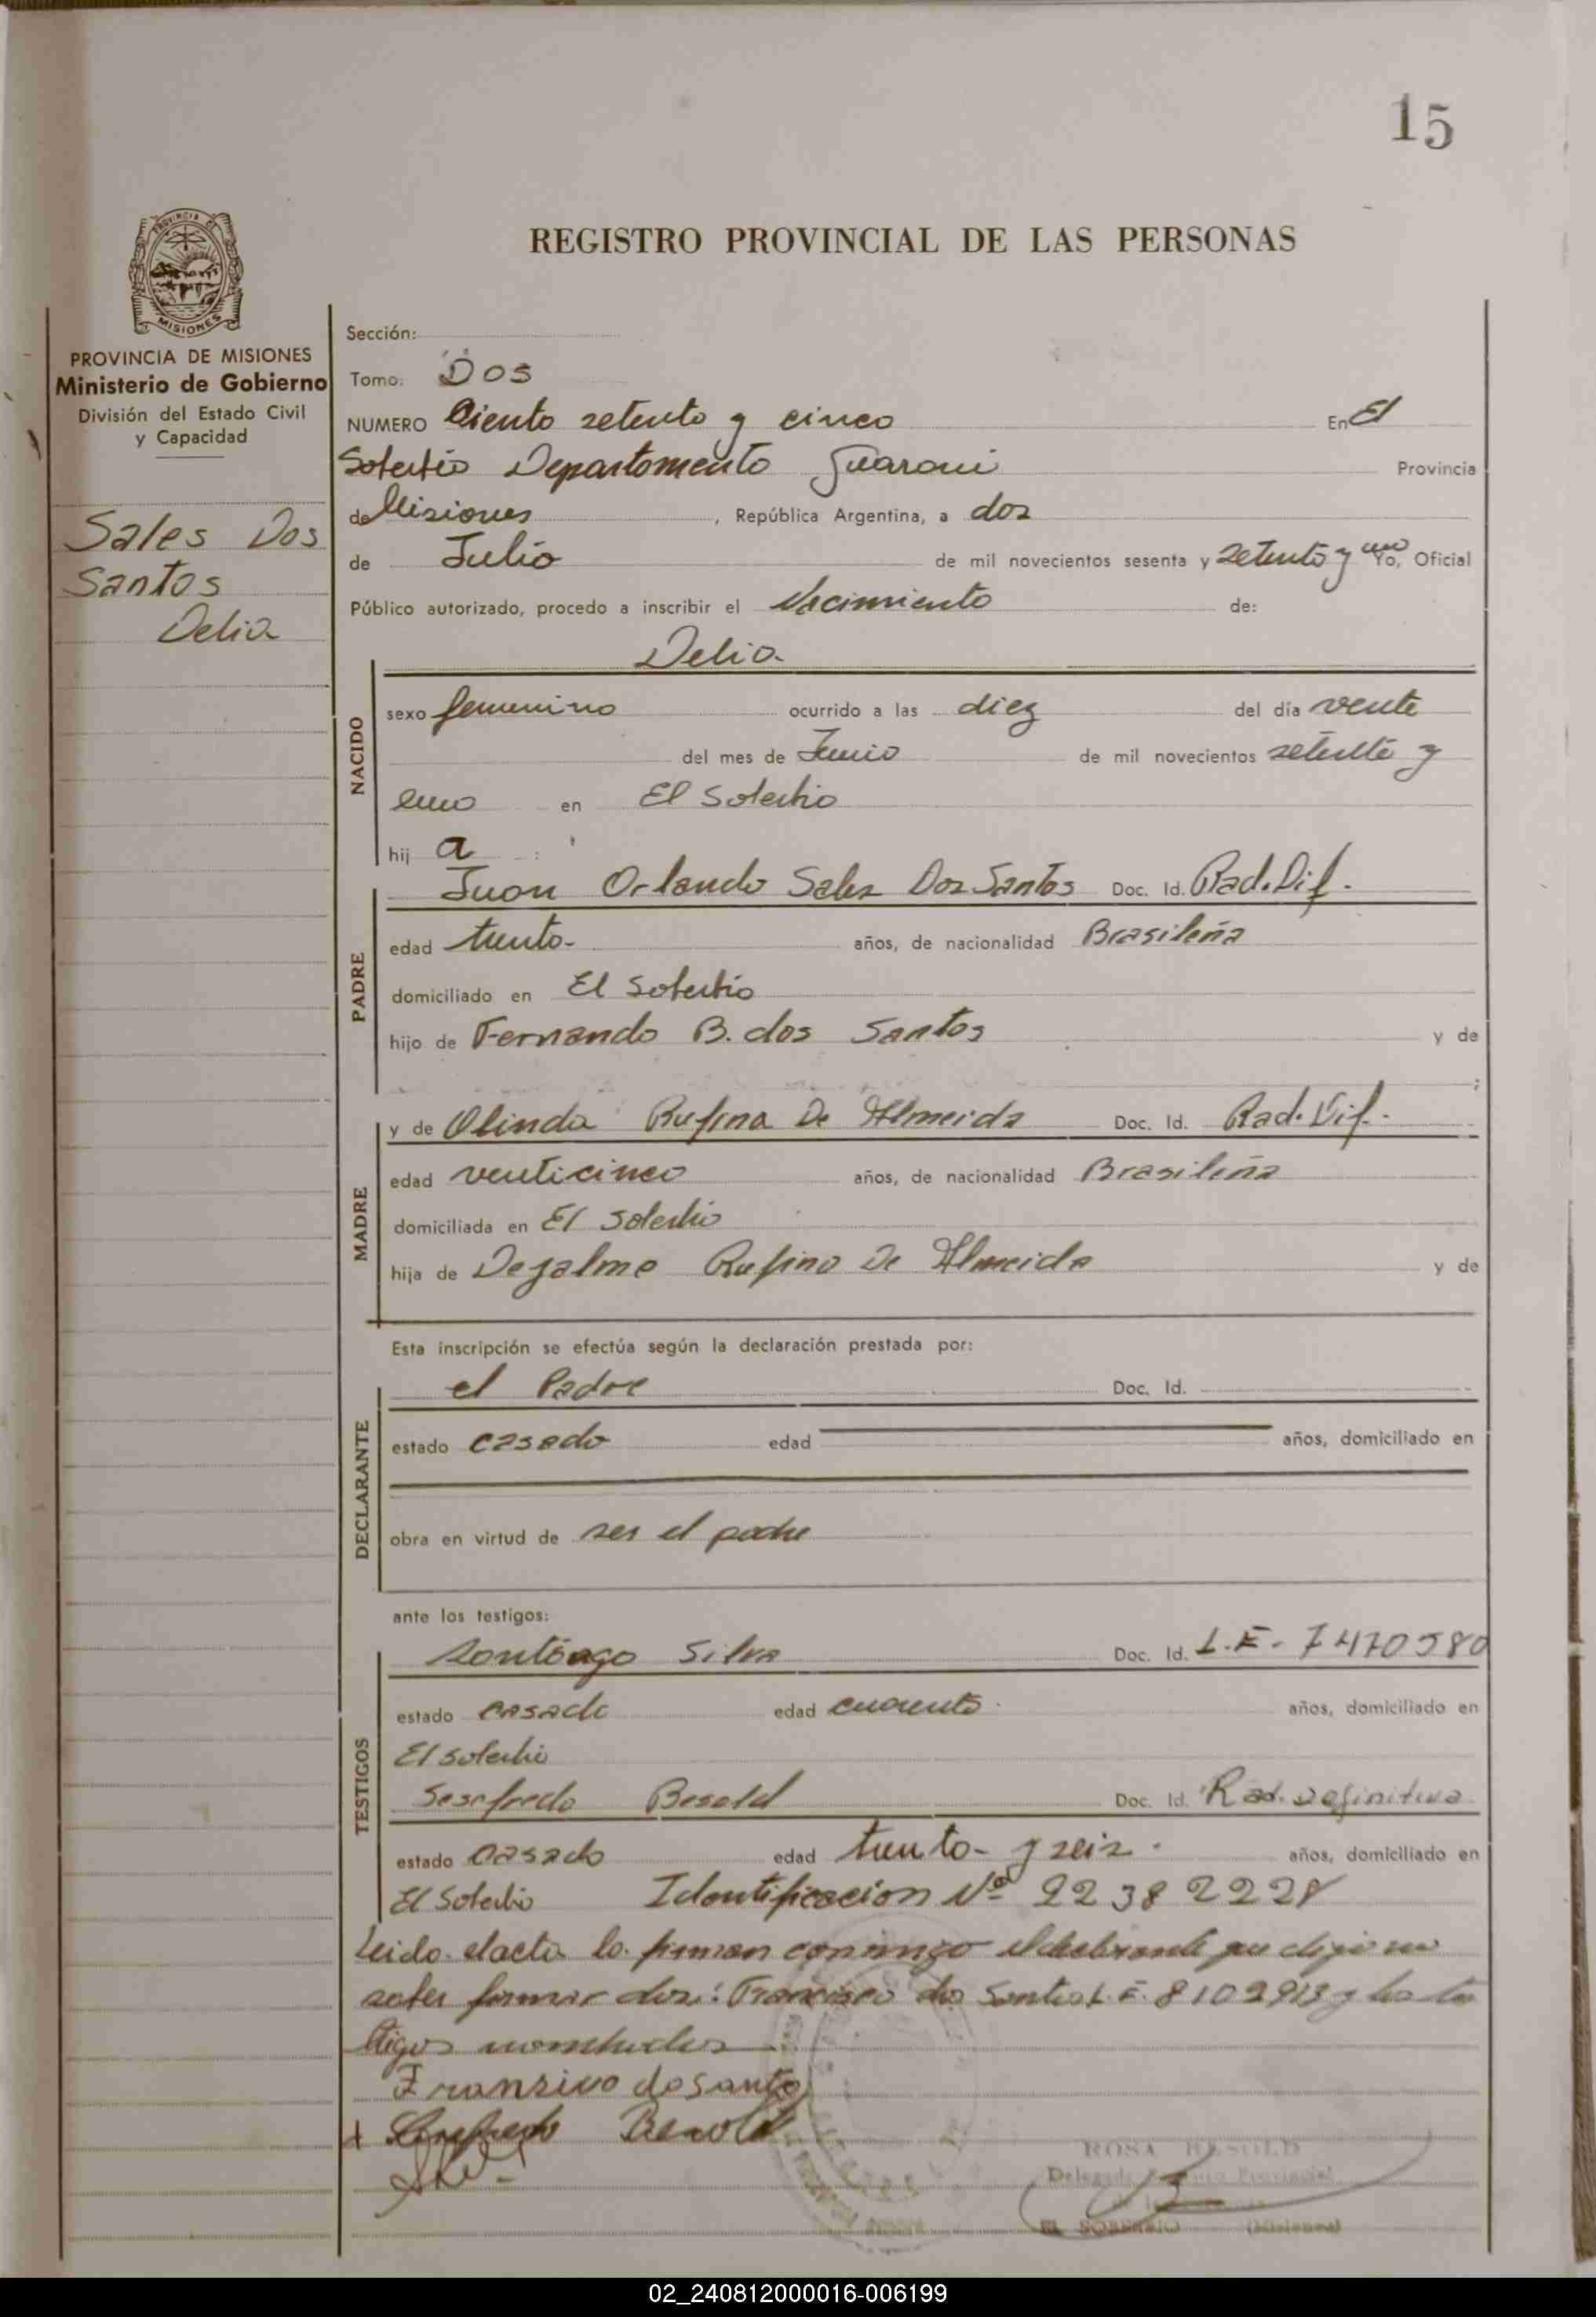 15
REGISTRO PROVINCIAL DE LAS PERSONAS
PROVINCIA DE MISIONES
MISIONES
PROVINCIA DE MISIONES
Ministerio de Gobierno
División del Estado Civil
y Capacidad
Sales Dos
Santos
Delia
Sección:
Tomo: Dos
NUMERO Ciento setenta y cinco En El
Soberbio Departamento Guarani Provincia
de Misiones, República Argentina, a dos
de Julio de mil novecientos sesenta y setenta y uno Yo, Oficial
Público autorizado, procedo a inscribir el Nacimiento de:
Delia
NACIDO
sexo femenino ocurrido a las diez del día veinte
del mes de Junio de mil novecientos setenta y
uno en El Soberbio
hij a :
PADRE
Juan Orlando Sales Dos Santos Doc. Id. Rad. Dif.
edad treinta- años, de nacionalidad Brasileña
domiciliado en El Soberbio
hijo de Fernando B. dos Santos y de
;
MADRE
y de Olinda Rufina De Almeida Doc. Id. Rad. Dif.
edad venticinco años, de nacionalidad Brasileña
domiciliada en El Soberbio
hija de Dejalmo Rufino De Almeida y de
Esta inscripción se efectúa según la declaración prestada por:
DECLARANTE
el Padre Doc. Id.
estado casado edad años, domiciliado en
obra en virtud de ser el padre
ante los testigos:
TESTIGOS
Santiago Silva Doc. Id. L.E. 7470580
estado casado edad cuarenta años, domiciliado en
El Soberbio
Sesefredo Besold Doc. Id. Rad. Definitiva
estado casado edad treinta y seis años, domiciliado en
El Soberbio Identificacion Nº
Leido el acta la firman conmigo que dijo no
saber firmar Francisco dos Santos L.E. 8102913 y los tes
tigos nombrados
Fransico do santo
Besold
ROSA BESOLD
EL SOBERBIO (Misiones)
02_240812000016-006199